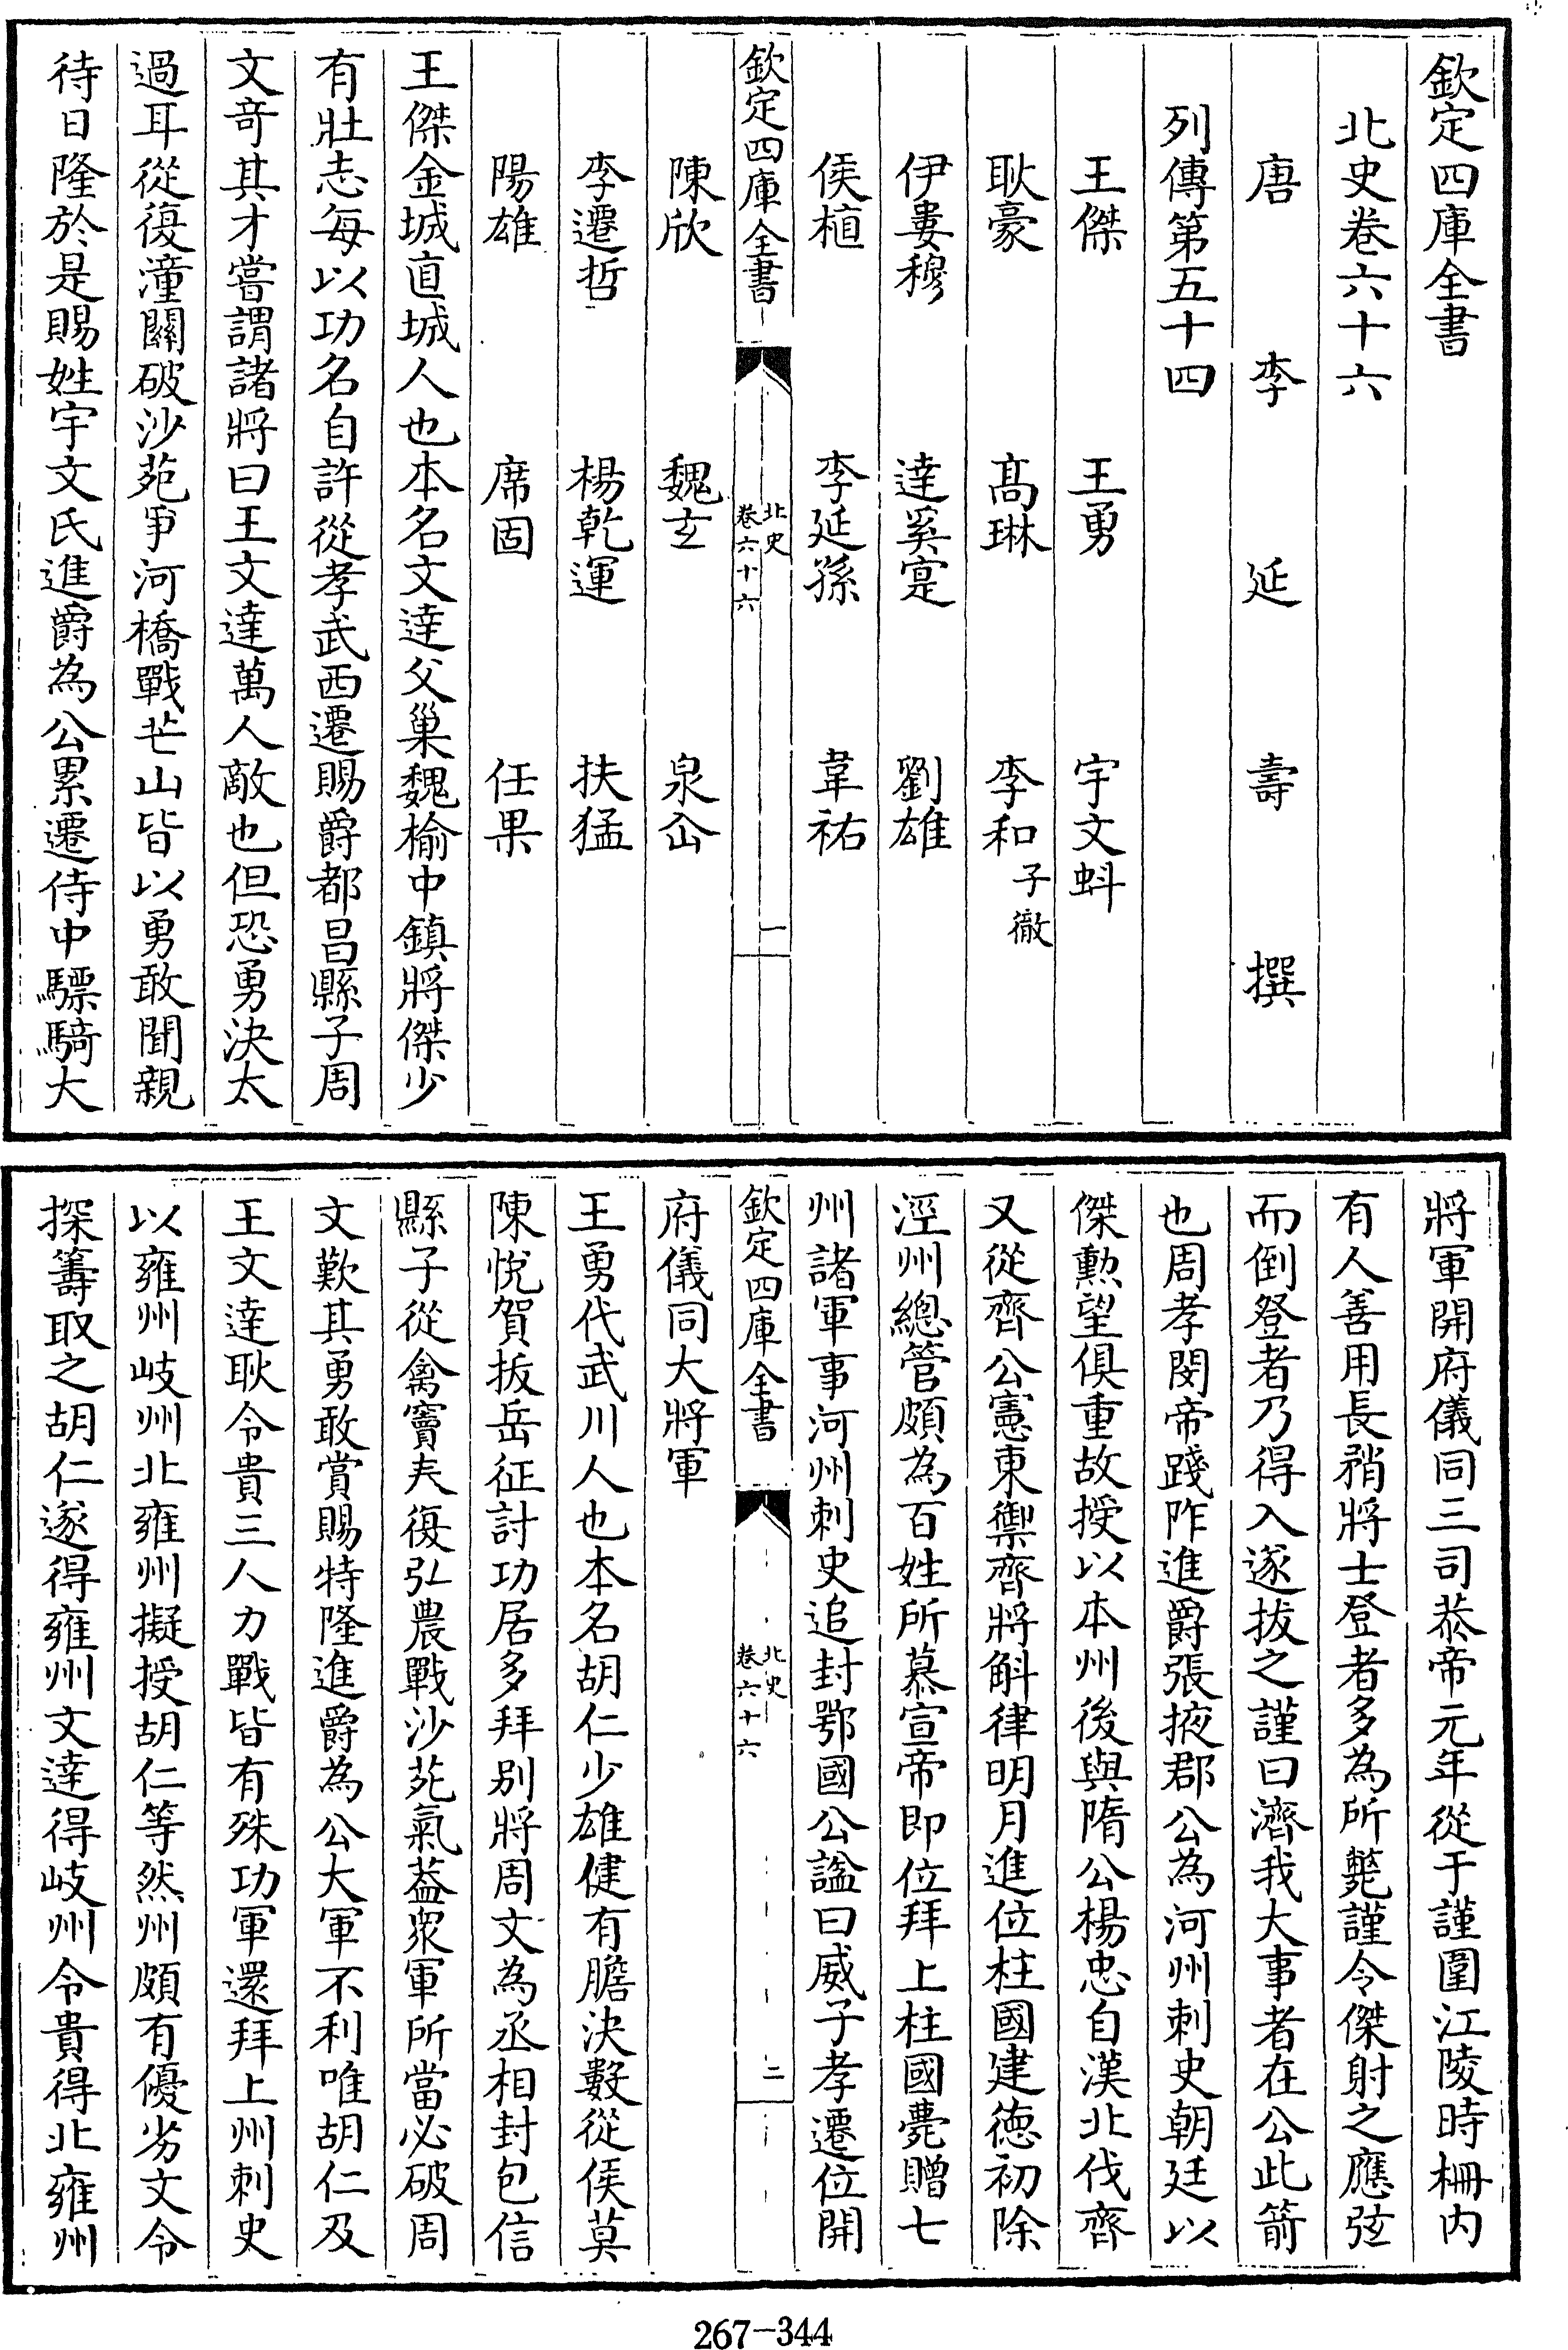 欽定四庫全書
北史卷六十六
唐 李 延 壽 撰
列傳第五十四
王傑 王勇 宇文虯
耿豪 髙琳 李和 子徹
伊婁穆 達奚寔 劉雄
侯植 李延孫 韋祐
欽定四庫全書
北史
卷六十六
一
陳欣 魏玄 泉仚
李遷哲 楊乾運 扶猛
陽雄 席固 任果
王傑金城直城人也本名文達父巢魏榆中鎮將傑少
有壯志每以功名自許從孝武西遷賜爵都昌縣子周
文奇其才嘗謂諸將曰王文達萬人敵也但恐勇決太
過耳從復潼關破沙苑爭河橋戰芒山皆以勇敢聞親
待日隆於是賜姓宇文氏進爵為公累遷侍中驃騎大
將軍開府儀同三司恭帝元年從于謹圍江陵時柵内
有人善用長矟將士登者多為所斃謹令傑射之應弦
而倒登者乃得入遂拔之謹曰濟我大事者在公此箭
也周孝閔帝踐阼進爵張掖郡公為河州刺史朝廷以
傑勲望俱重故授以本州後與隋公楊忠自漠北伐齊
又從齊公憲東禦齊將斛律明月進位柱國建德初除
涇州總管頗為百姓所慕宣帝即位拜上柱國薨贈七
州諸軍事河州刺史追封鄂國公諡曰威子孝遷位開
欽定四庫全書
北史
卷六十六
二
府儀同大將軍
王勇代武川人也本名胡仁少雄健有膽決數從侯莫
陳悅賀拔岳征討功居多拜别將周文為丞相封包信
縣子從禽竇夫復弘農戰沙苑氣葢衆軍所當必破周
文歎其勇敢賞賜特隆進爵為公大軍不利唯胡仁及
王文達耿令貴三人力戰皆有殊功軍還拜上州刺史
以雍州岐州北雍州擬授胡仁等然州頗有優劣文令
探籌取之胡仁遂得雍州文達得岐州令貴得北雍州
267-344